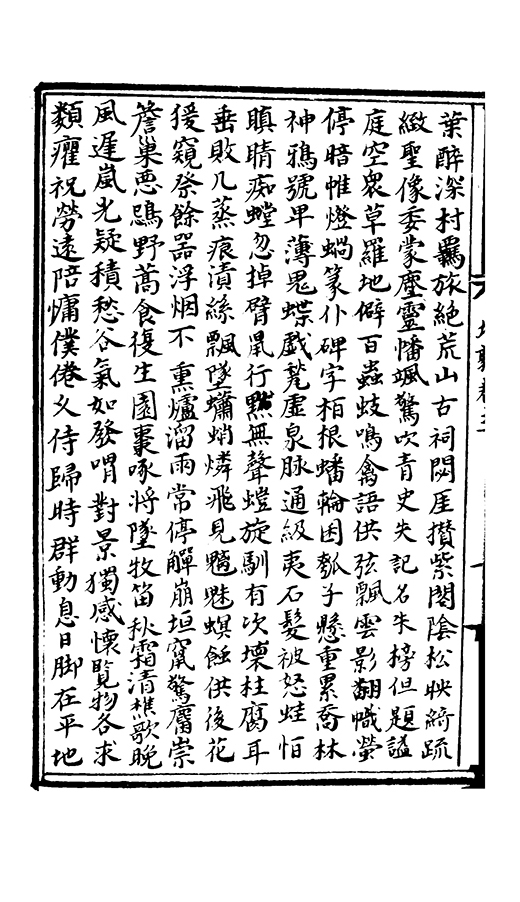 葉醉深村羈旅絕荒山古祠閟厓攢紫閣陰松映綺疏
緻聖像委蒙塵靈幡颯驚吹青史失記名朱榜但題謚
庭空衆草羅地僻百蟲蚑鳴禽語供弦飄雲影翻幟螢
停暗帷燈蝸篆仆碑字柏根蟠輪囷瓠子懸重累喬林
神鴉號早薄鬼蝶戲甃虛泉脉通級夷石髮被怒蛙怕
瞋睛痴螳忽掉臂鼠行黠無聲螘旋馴有次壞柱腐耳
垂敗几蒸痕漬絲飄墜蠨蛸燐飛見魑魅螟蝕供後花
猨窺祭餘器浮烟不熏爐溜雨常停觶崩垣竄驚麏崇
簷巢惡鴟野蒿食復生園棗啄將墜牧笛秋霜清樵歌晚
風遲嵐光疑積愁谷氣如發喟對景獨感懷覽物各求
類癯祝勞遠陪慵僕倦乂侍歸時群動息日脚在平地